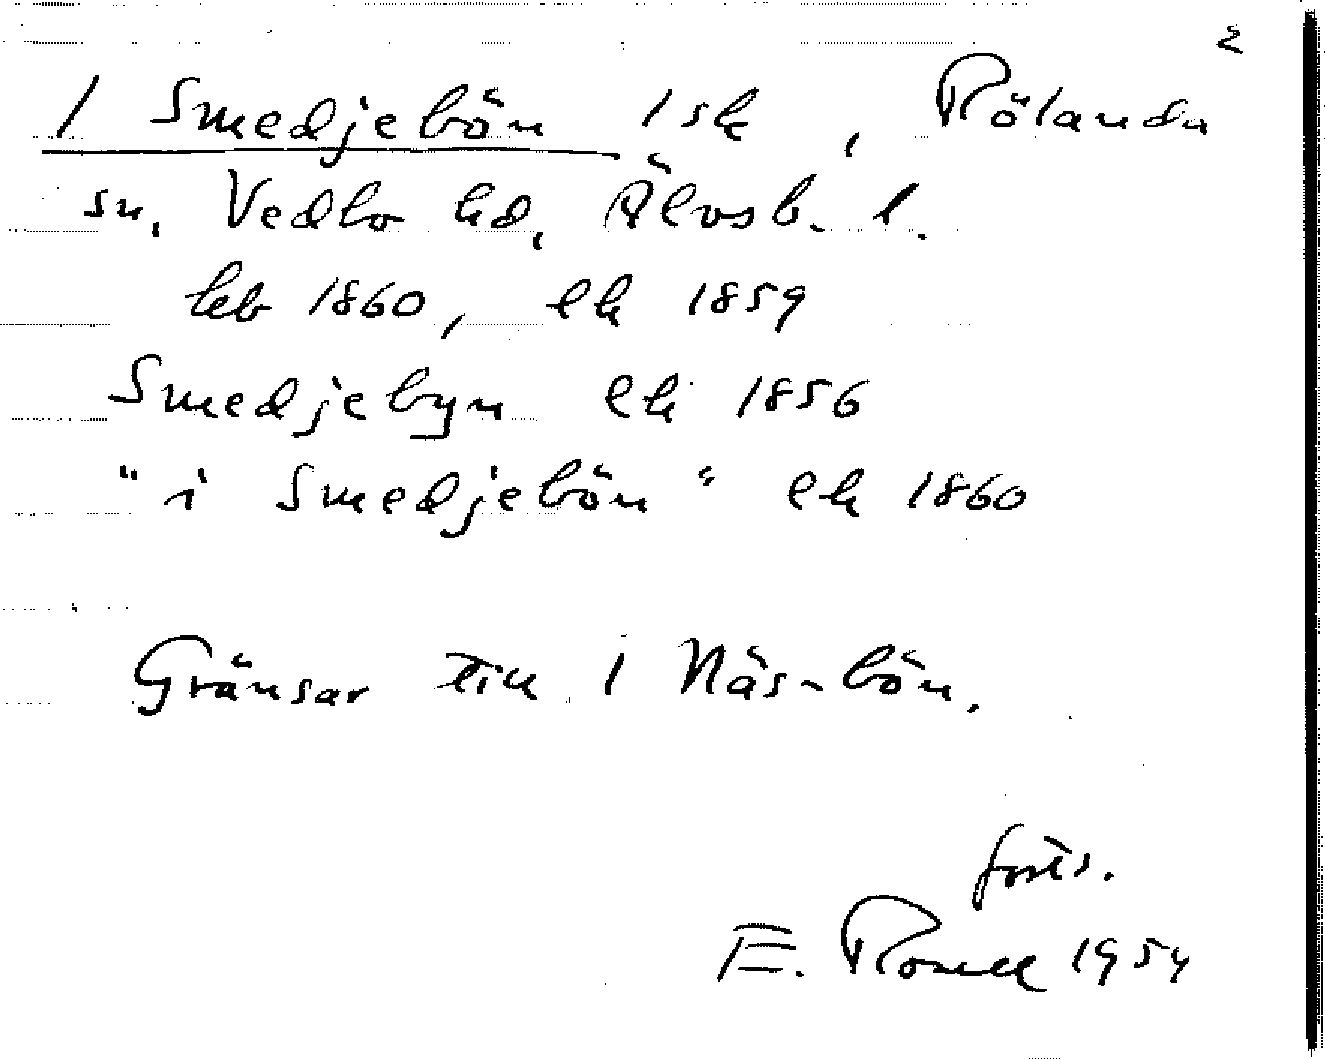 2
/ Smedjebön /sk, Rölanda
sn, Vedbo hd, Älvsb. l.
hb 1860, ek 1859
Smedjebyn ek 1856
"i Smedjebön" ek 1860
Gränsar till / Näs-bön.
forts.
E. Rosell 1954